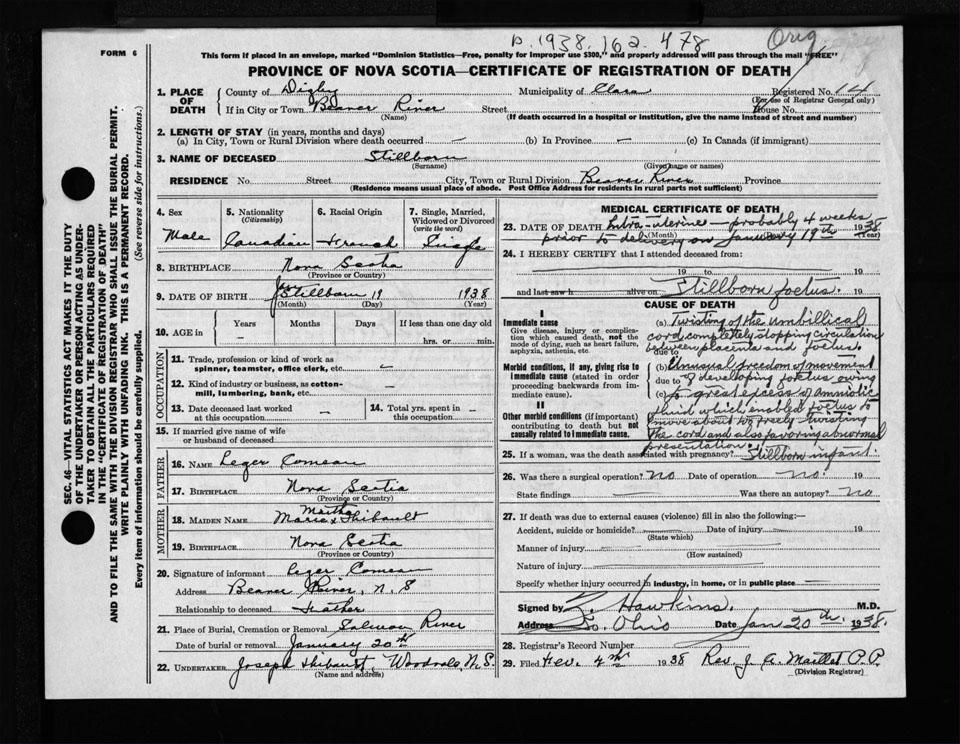 p. 1938. 162. 478
Orig
FORM 6
This form if placed in an envelope, marked "Dominion Statistics—Free, penalty for improper use $300," and properly addressed will pass through the mail "FREE"
PROVINCE OF NOVA SCOTIA—CERTIFICATE OF REGISTRATION OF DEATH
SEC. 46—VITAL STATISTICS ACT MAKES IT THE DUTY
OF THE UNDERTAKER OR PERSON ACTING AS UNDER-
TAKER TO OBTAIN ALL THE PARTICULARS REQUIRED
IN THE "CERTIFICATE OF REGISTRATION OF DEATH"
AND TO FILE THE SAME WITH THE DIVISION REGISTRAR WHO SHALL ISSUE THE BURIAL PERMIT.
WRITE PLAINLY WITH UNFADING INK. THIS IS A PERMANENT RECORD.
Every item of information should be carefully supplied. (See reverse side for instructions.)
1. PLACE OF DEATH
County of Digby Municipality of Clare Registered No. 14
(For use of Registrar General only)
If in City or Town Beaver River Street House No.
(Name) (If death occurred in a hospital or institution, give the name instead of street and number)
2. LENGTH OF STAY (in years, months and days)
(a) In City, Town or Rural Division where death occurred — (b) In Province — (c) In Canada (if immigrant)
3. NAME OF DECEASED Stillborn
(Surname) (Given name or names)
RESIDENCE No. Street City, Town or Rural Division Beaver River Province
(Residence means usual place of abode. Post Office Address for residents in rural parts not sufficient)
4. Sex Male
5. Nationality (Citizenship) Canadian
6. Racial Origin French
7. Single, Married, Widowed or Divorced (write the word) Single
8. BIRTHPLACE Nova Scotia
(Province or Country)
9. DATE OF BIRTH Stillborn 19 1938
(Month) (Day) (Year)
10. AGE in Years Months Days If less than one day old
— hrs. or min.
OCCUPATION
11. Trade, profession or kind of work as spinner, teamster, office clerk, etc. —
12. Kind of industry or business, as cotton-mill, lumbering, bank, etc. —
13. Date deceased last worked at this occupation —
14. Total yrs. spent in this occupation —
15. If married give name of wife or husband of deceased
FATHER
16. NAME Leger Comeau
17. BIRTHPLACE Nova Scotia
(Province or Country)
MOTHER
18. MAIDEN NAME Marie Martha Thibault
19. BIRTHPLACE Nova Scotia
(Province or Country)
20. Signature of informant Leger Comeau
Address Beaver River, N. S
Relationship to deceased Father
21. Place of Burial, Cremation or Removal Salmon River
Date of burial or removal January 20th
22. UNDERTAKER Joseph Thibault, Woodvale N. S.
(Name and address)
MEDICAL CERTIFICATE OF DEATH
23. DATE OF DEATH Intra-uterine—probably 4 weeks
prior to delivery on January 19th 1938
(Month) (Year)
24. I HEREBY CERTIFY that I attended deceased from:
19 to 19
and last saw h alive on Stillborn foetus. 19
CAUSE OF DEATH
I
Immediate cause
Give disease, injury or complication which caused death, not the mode of dying, such as heart failure, asphyxia, asthenia, etc.
(a) Twisting of the umbillical
cord completely stopping circulation
between placenta and foetus.
due to
Morbid conditions, if any, giving rise to immediate cause (stated in order proceeding backwards from immediate cause).
(b) Unusual freedom of movement
due to of developing foetus owing
(c) to great excess of amniotic
fluid which enabled foetus to
move about too freely twisting
the cord and also favoring abnormal
presentation.
II
Other morbid conditions (if important) contributing to death but not causally related to immediate cause.
25. If a woman, was the death associated with pregnancy? Stillborn infant.
26. Was there a surgical operation? no Date of operation no. 19
State findings — Was there an autopsy? no
27. If death was due to external causes (violence) fill in also the following:—
Accident, suicide or homicide? Date of injury 19
(State which)
Manner of injury
(How sustained)
Nature of injury
Specify whether injury occurred in industry, in home, or in public place —
Signed by Hawkins. M.D.
Address So. Ohio Date Jan 20th. 1938.
28. Registrar's Record Number
29. Filed Fev. 4th 1938 Rev. J. A. Maillet P. P.
(Division Registrar)